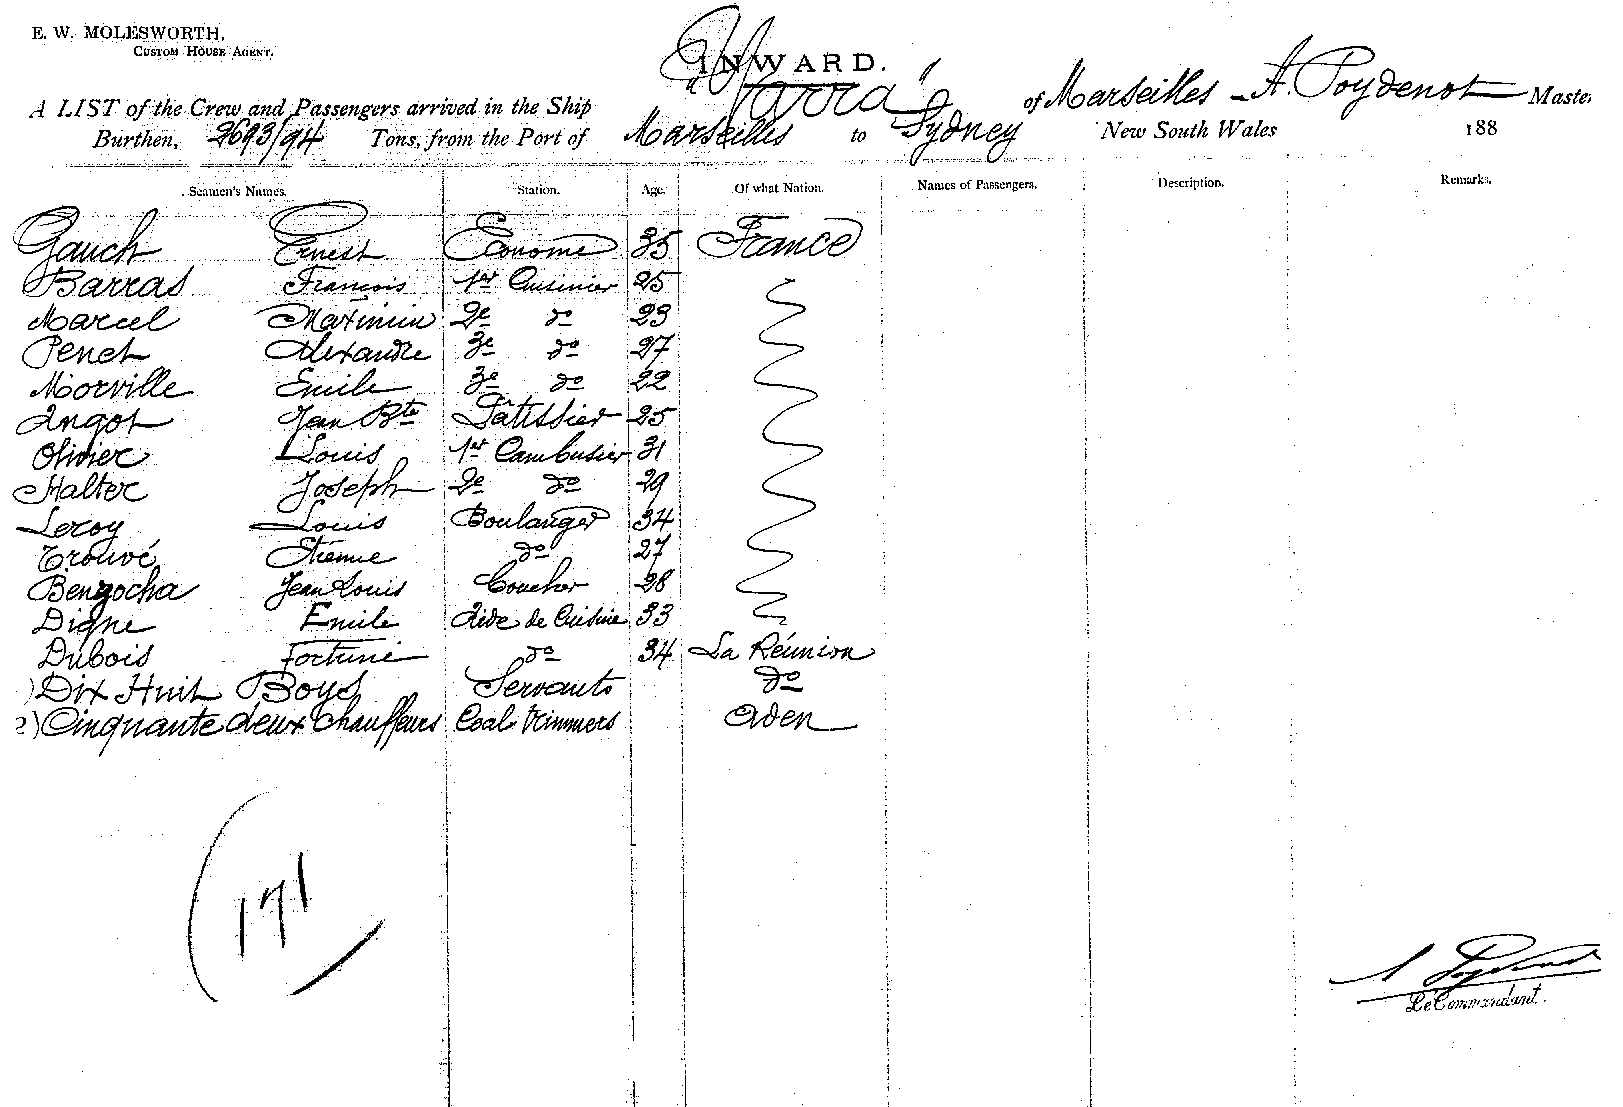 E. W. MOLESWORTH,
CUSTOM HOUSE AGENT.
INWARD.
A LIST of the Crew and Passengers arrived in the Ship "Yarra" of Marseilles - A. Poydenot Master
Burthen, 2693/94 Tons, from the Port of Marseilles to Sydney New South Wales 188
Seamen's Names. Station. Age. Of what Nation. Names of Passengers. Description. Remarks.
Gauch Ernest Econome 35 France
Barras François 1er Cuisinier 25
Marcel Maximin 2e do 23
Penet Alexandre 3e do 27
Morville Emile 3e do 22
Angot Jean Bte Pâtissier 25
Olivier Louis 1er Cambusier 31
Halter Joseph 2e do 29
Leroy Louis Boulanger 34
Trouvé Etienne do 27
Bengocha Jean Louis 28
Digne Emile Aide de Cuisine 33
Dubois Fortuné do 34 La Réunion
) Dix Huit Boys Servants do
2) Cinquante deux Chauffeurs Coal trimmers Aden
171
A Poydenot
Le Commandant.